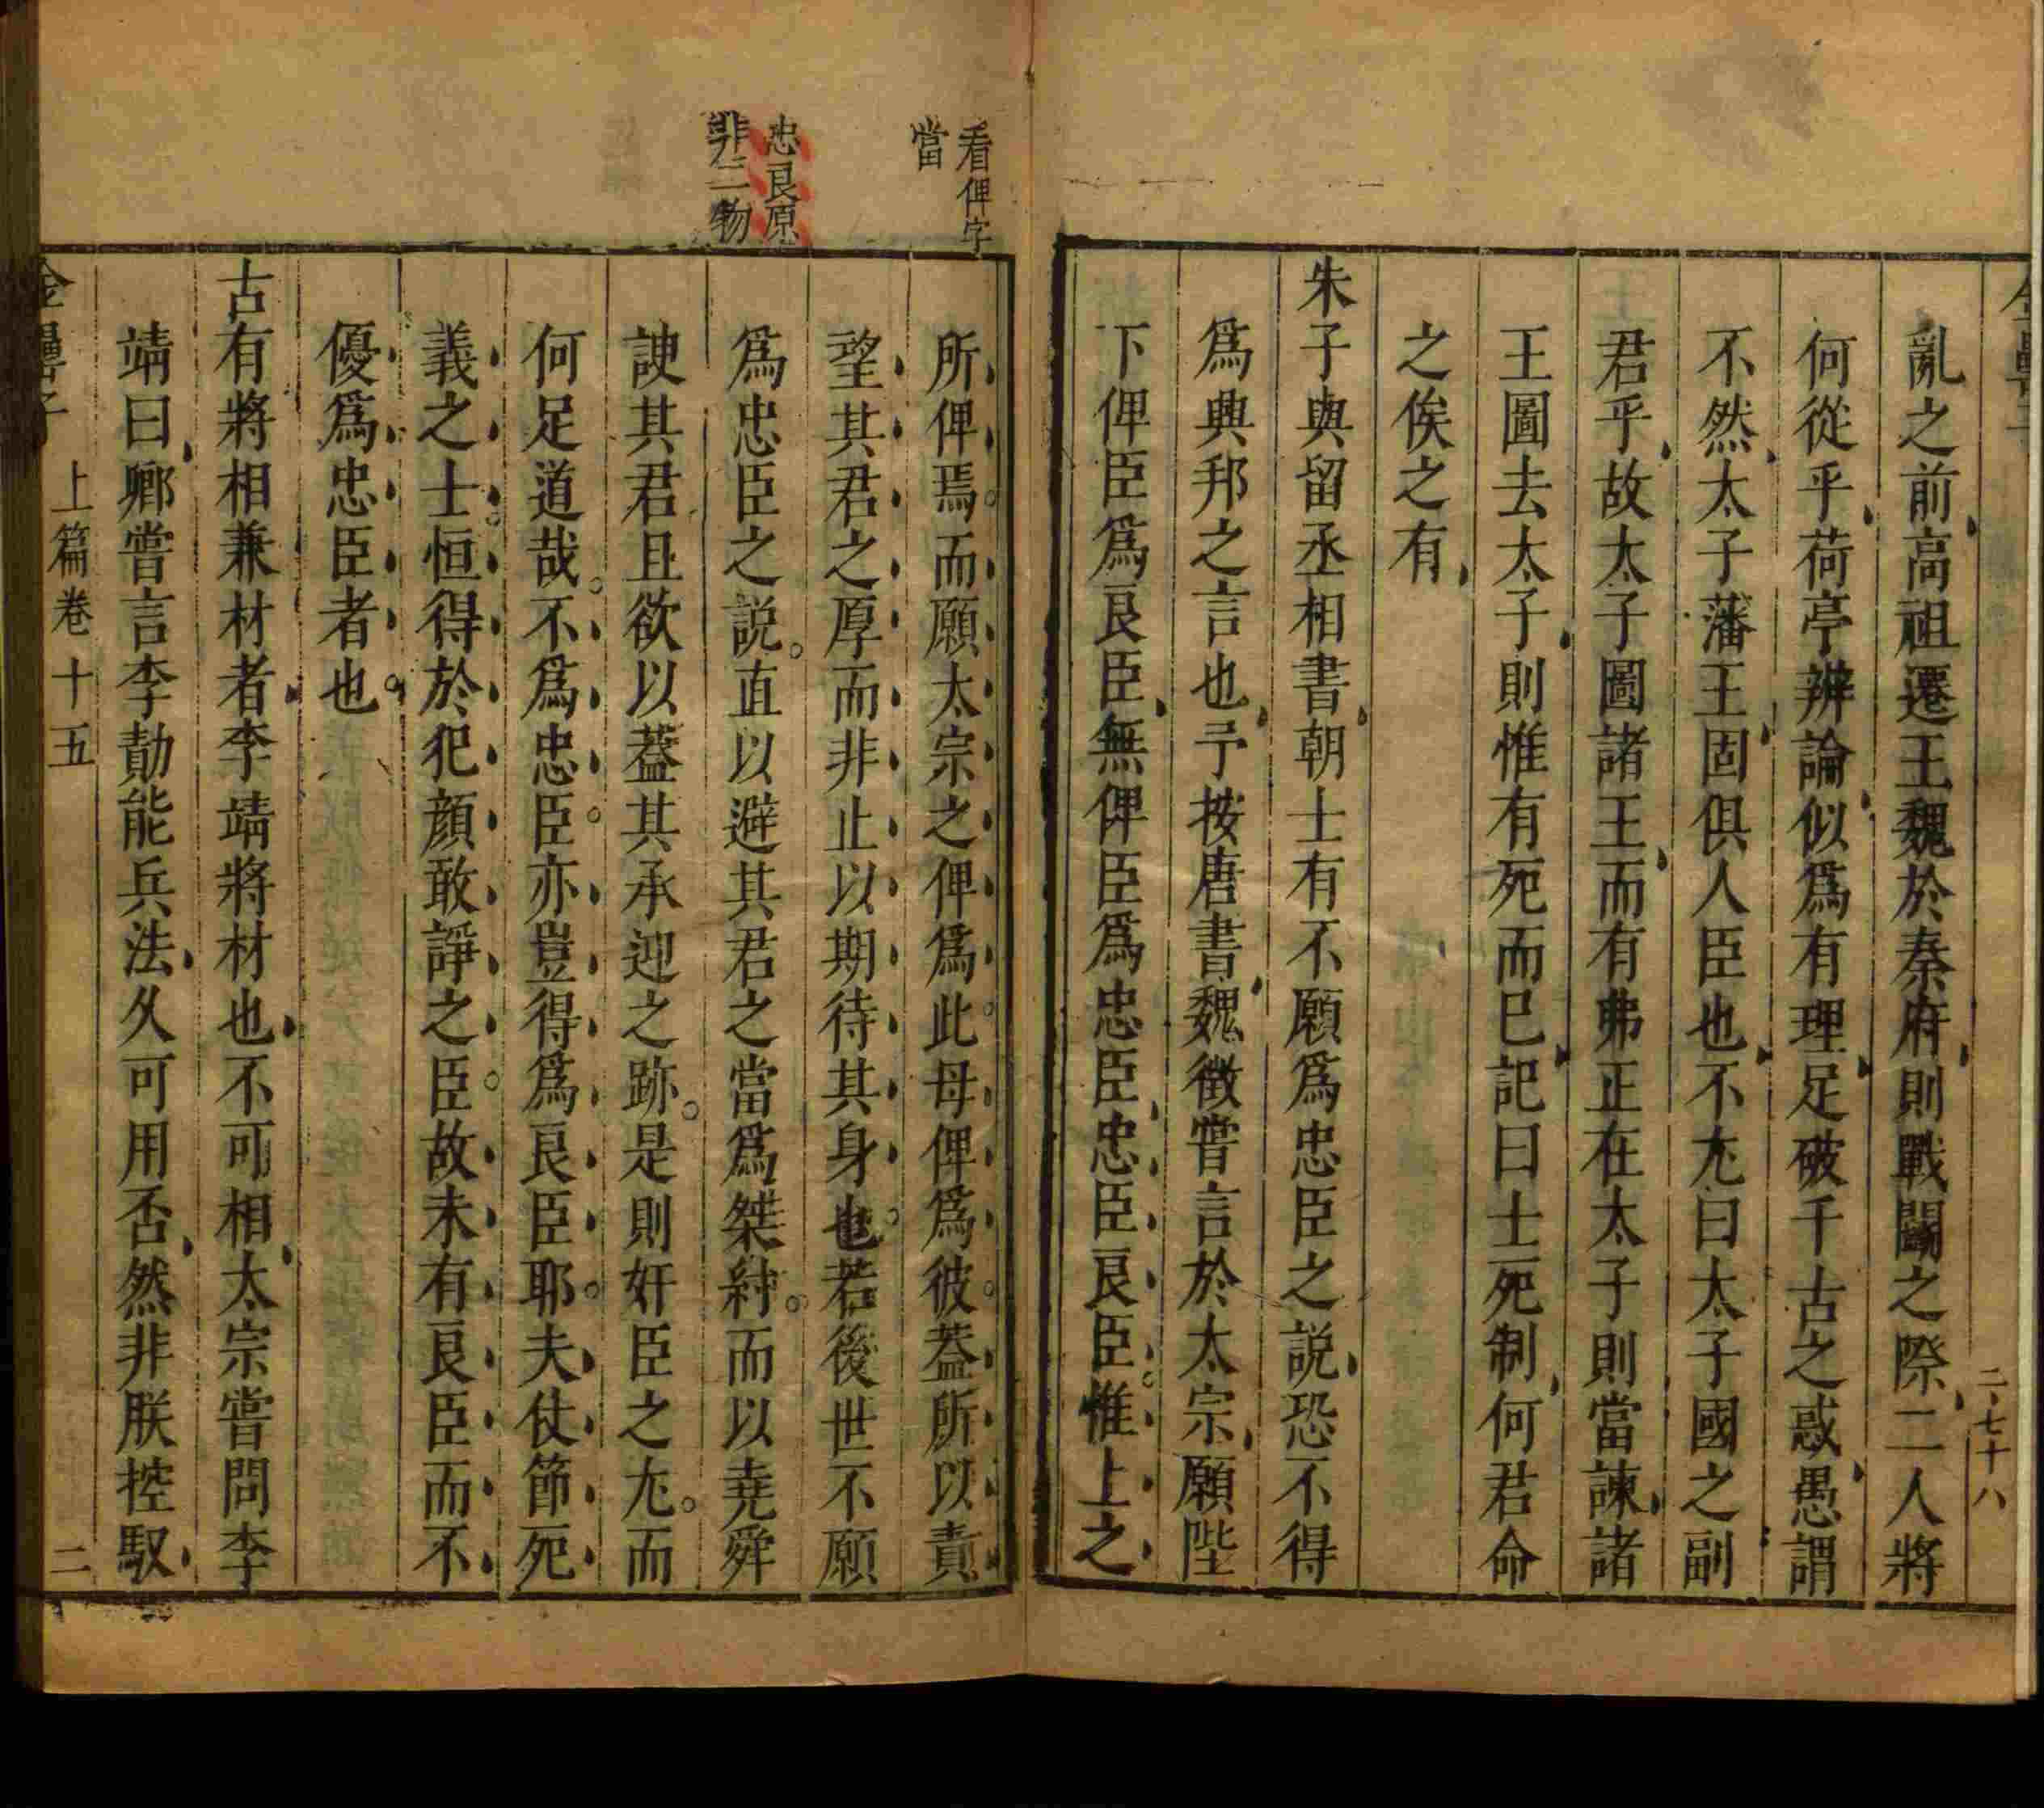 二七十八
亂之前高祖遷王魏於秦府則戰鬬之際二人將
何從乎荷亭辨論似爲有理足破千古之惑愚謂
不然太子藩王固俱人臣也不尢曰太子國之副
君乎故太子圖諸王而有弗正在太子則當諫諸
王圖去太子則惟有死而已記曰士死制何君命
之俟之有
朱子與留丞相書朝士有不願爲忠臣之説恐不得
爲興邦之言也予按唐書魏徵嘗言於太宗願陛
下俾臣爲良臣無俾臣爲忠臣忠臣良臣惟上之
看俾字
當
忠良原
非二物
所俾焉而願太宗之俾爲此毋俾爲彼蓋所以責
望其君之厚而非止以期待其身也若後世不願
爲忠臣之説直以避其君之當爲桀紂而以堯舜
諛其君且欲以蓋其承迎之跡是則奸臣之尢而
何足道哉不爲忠臣亦豈得爲良臣耶夫仗節死
義之士恒得於犯顔敢諍之臣故未有良臣而不
優爲忠臣者也
古有將相兼材者李靖將材也不可相太宗嘗問李
靖曰卿嘗言李勣能兵法久可用否然非朕控馭
金罍子
上篇卷十五
二